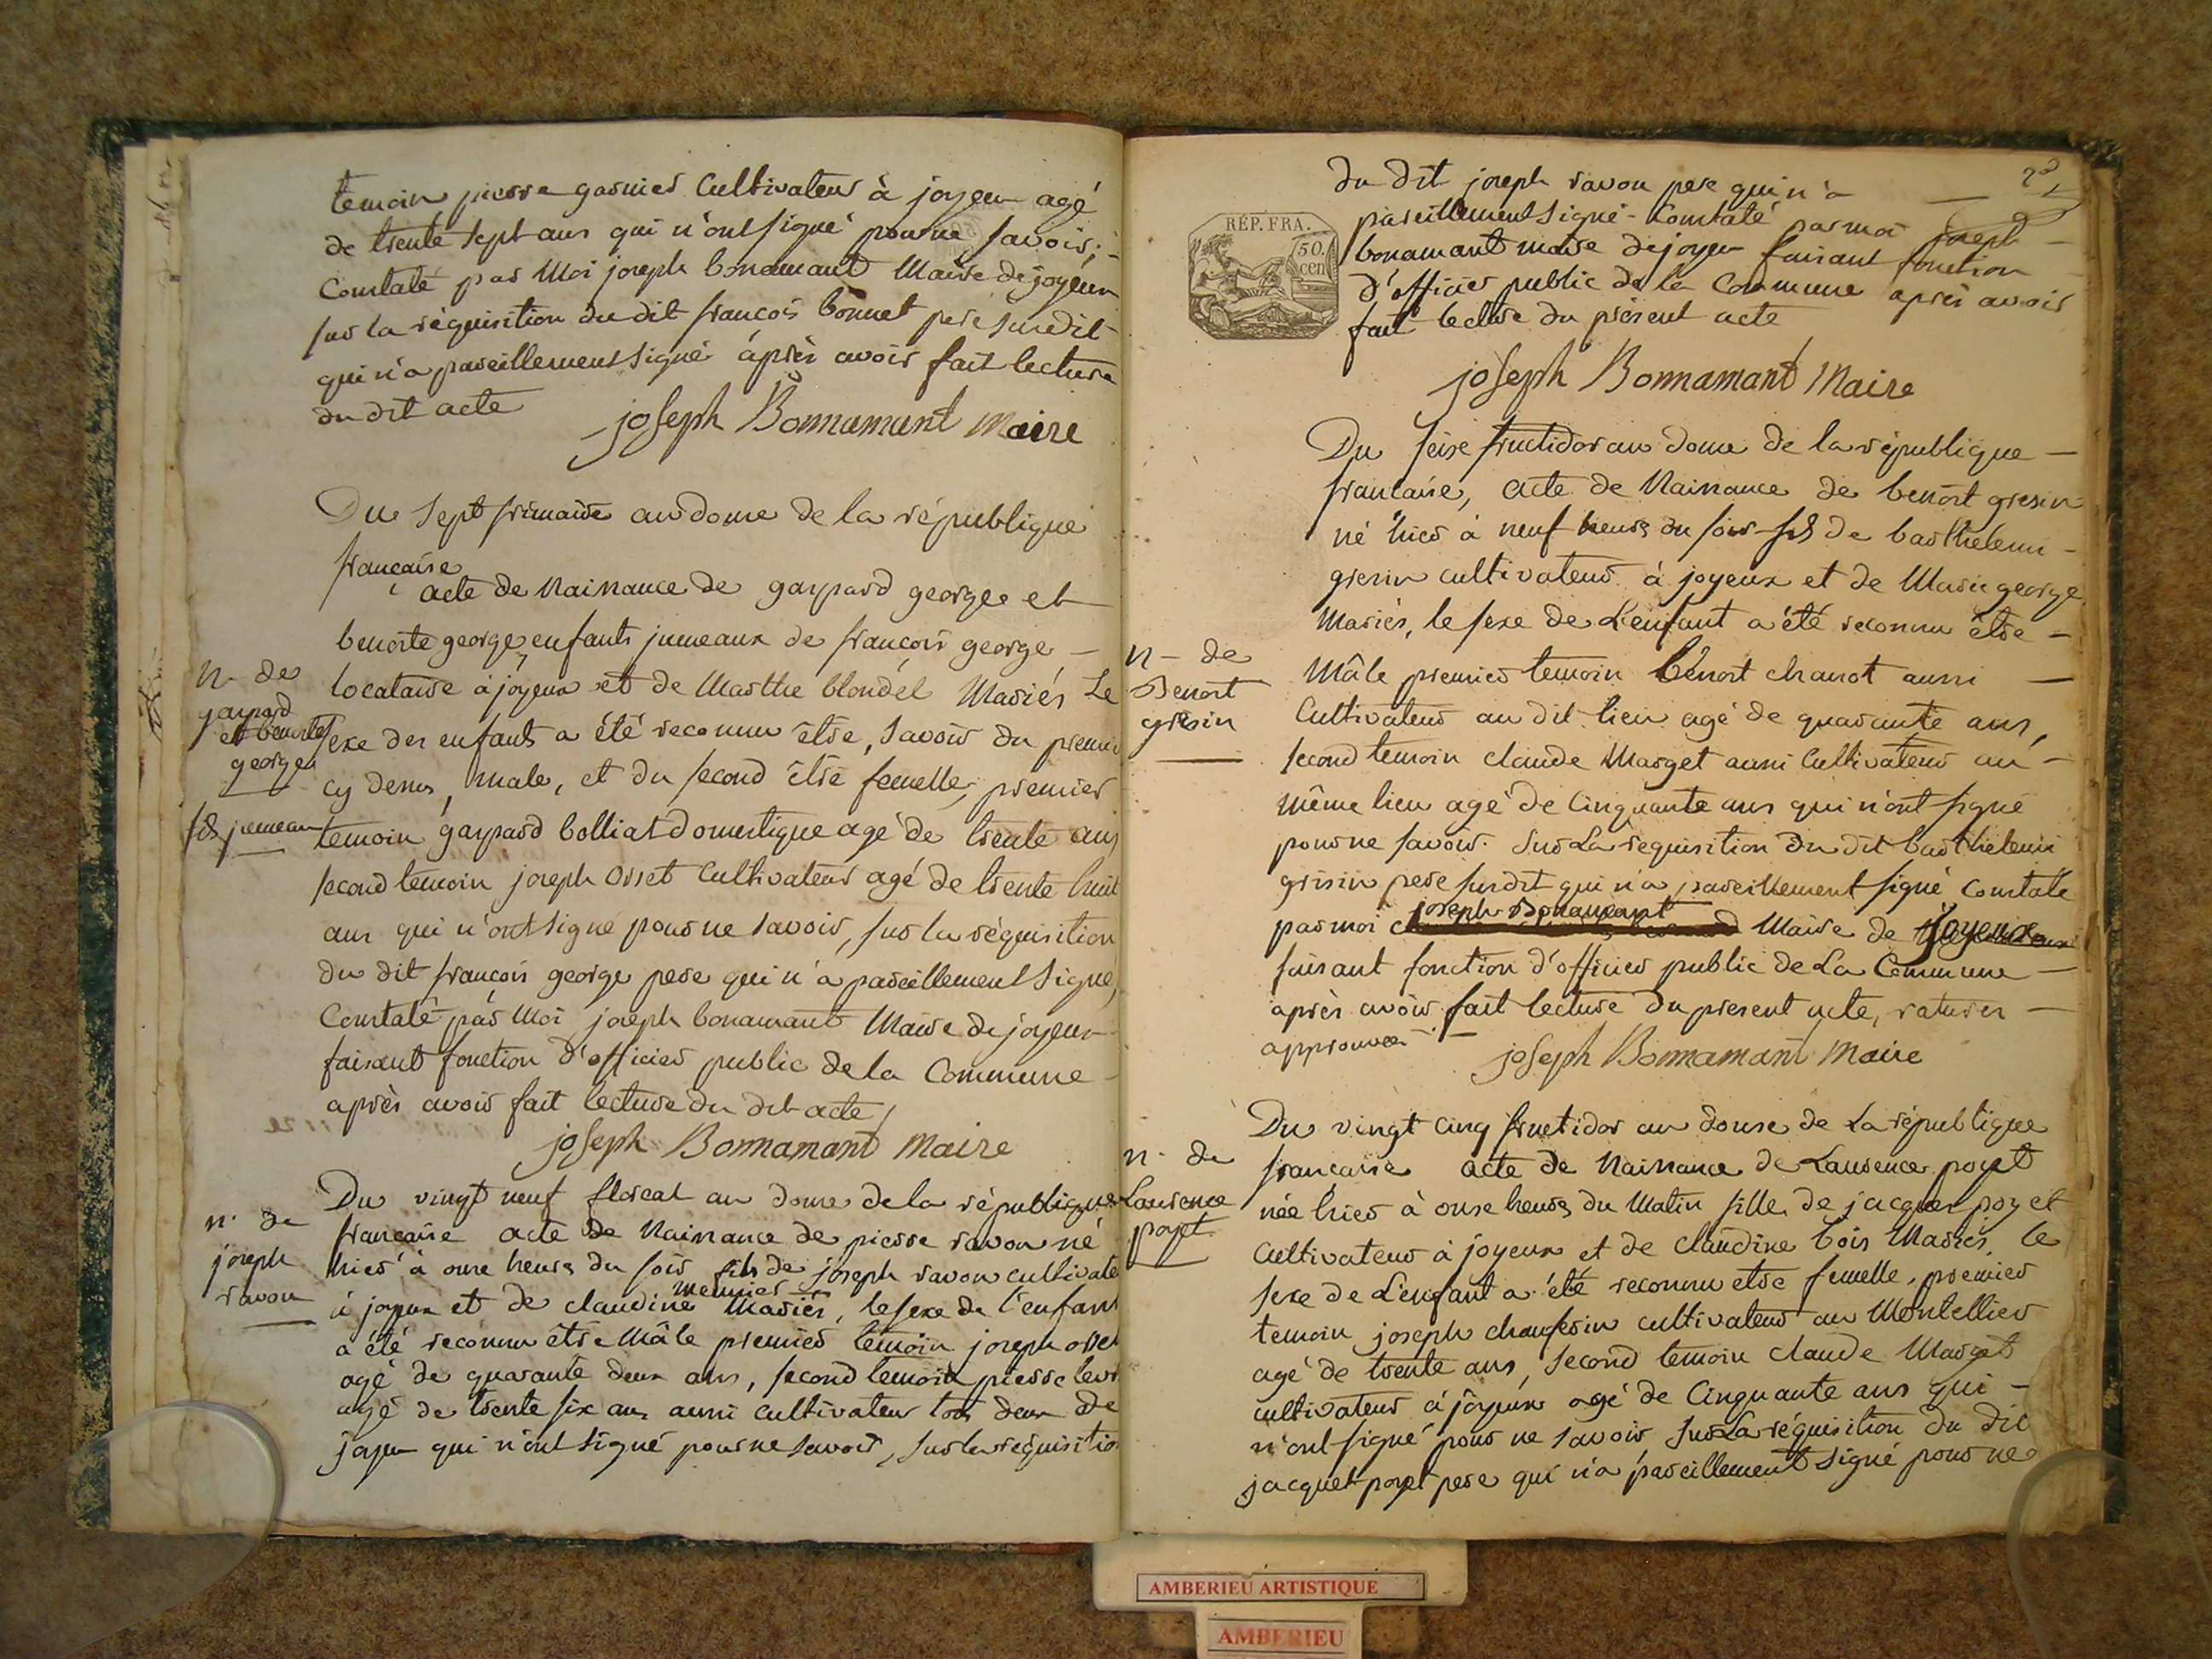 temoin pierre garnier Cultivateur à joyeux agé
de trente sept ans qui n'ont signé pour ne savoir;
Constaté par Moi joseph bonamant Maire de joyeux
sur la réquisition du dit françois bonnet pere surdit
qui n'a pareillement signé áprès avoir fait lecture
du dit acte
joseph Bonnamant maire
Du sept frimaire an douze de la république
française
acte de Naissance de gaspard george et
benoite george enfants jumeaux de françois george
locataire à joyeux et de Marthe blondel Mariés Le
sexe des enfants a été reconnu être, savoir du premier
cy denus, male, et du second être femelle, premier
temoin gaspard bolliat domestique agé de trente ans
second temoin joseph Orset Cultivateur agé de trente huit
ans qui n'ont signé pour ne savoir, sur la réquisition
du dit françois george pere qui n'a pareillement signé,
Constaté par Moi joseph bonamant Maire de joyeux
faisant fonction d'officier public de la Commune
après avoir fait lecture du dit acte
joseph Bonnamant maire
n. de
gaspard
et benoite
george
fs jumeau
Du vingt neuf floreal an douze de la république
française acte de Naissance de pierre ravon né
hier à onze heures du soir fils de joseph ravon cultivate
à joyeux et de claudine meunier Mariés, le sexe de l'enfant
a été reconnu être Mâle premier temoin joseph orset
agé de quarante deux ans, second temoin pierre
agé de trente six ans aussi cultivateur tous deux de
joyeu qui n'ont signé pour ne savoir, sur la requisitio
n. de
joseph
ravon
du dit joseph ravon pere qui n'a
pareillement signé - Constaté par moi joseph
bonamant maire de joyeu faisant fonction
d'officier public de la Commune après avoir
fait lecture du présent acte
RÉP. FRA.
50.
cen
joseph Bonnamant Maire
Du seize fructidor an douze de la république
francaise, acte de Naissance de benoit gresin
né hier à neuf heures du soir fils de barthelemi
gresin cultivateur à joyeux et de Marie george
Mariés, le sexe de L'enfant a été reconnu être
Mâle premier temoin benoit chanot aussi
Cultivateur au dit lieu agé de quarante ans,
second temoin claude Marget aussi Cultivateur au
même lieu agé de Cinquante ans qui n'ont signé
pour ne savoir. sur La requisition du dit barthelemi
grisin pere surdit qui n'a pareillement signé Constaté
par moi joseph Bonamant Maire de joyeux
faisant fonction d'officier public de La Commune
après avoir fait lecture du present acte, ratures
approuvée
joseph Bonnamant Maire
n - de
Benoit
gresin
Du vingt cinq fructidor an douse de La république
française acte de Naissance de Laurence poyet
née hier à onse heures du Matin fille de jacques poyet
Cultivateur à joyeux et de claudine bois Mariés le
sexe de L'enfant a été reconnu etre femelle, premier
temoin joseph cultivateur au Montellier
agé de trente ans, second temoin claude Marget
cultivateur à joyeux agé de Cinquante ans qui
n'ont signé pour ne savoir sur La réquisition du dit
jacquet poyet pere qui n'a pareillement signé pour ne
n. de
Laurence
poyet
AMBERIEU ARTISTIQUE
AMBERIEU